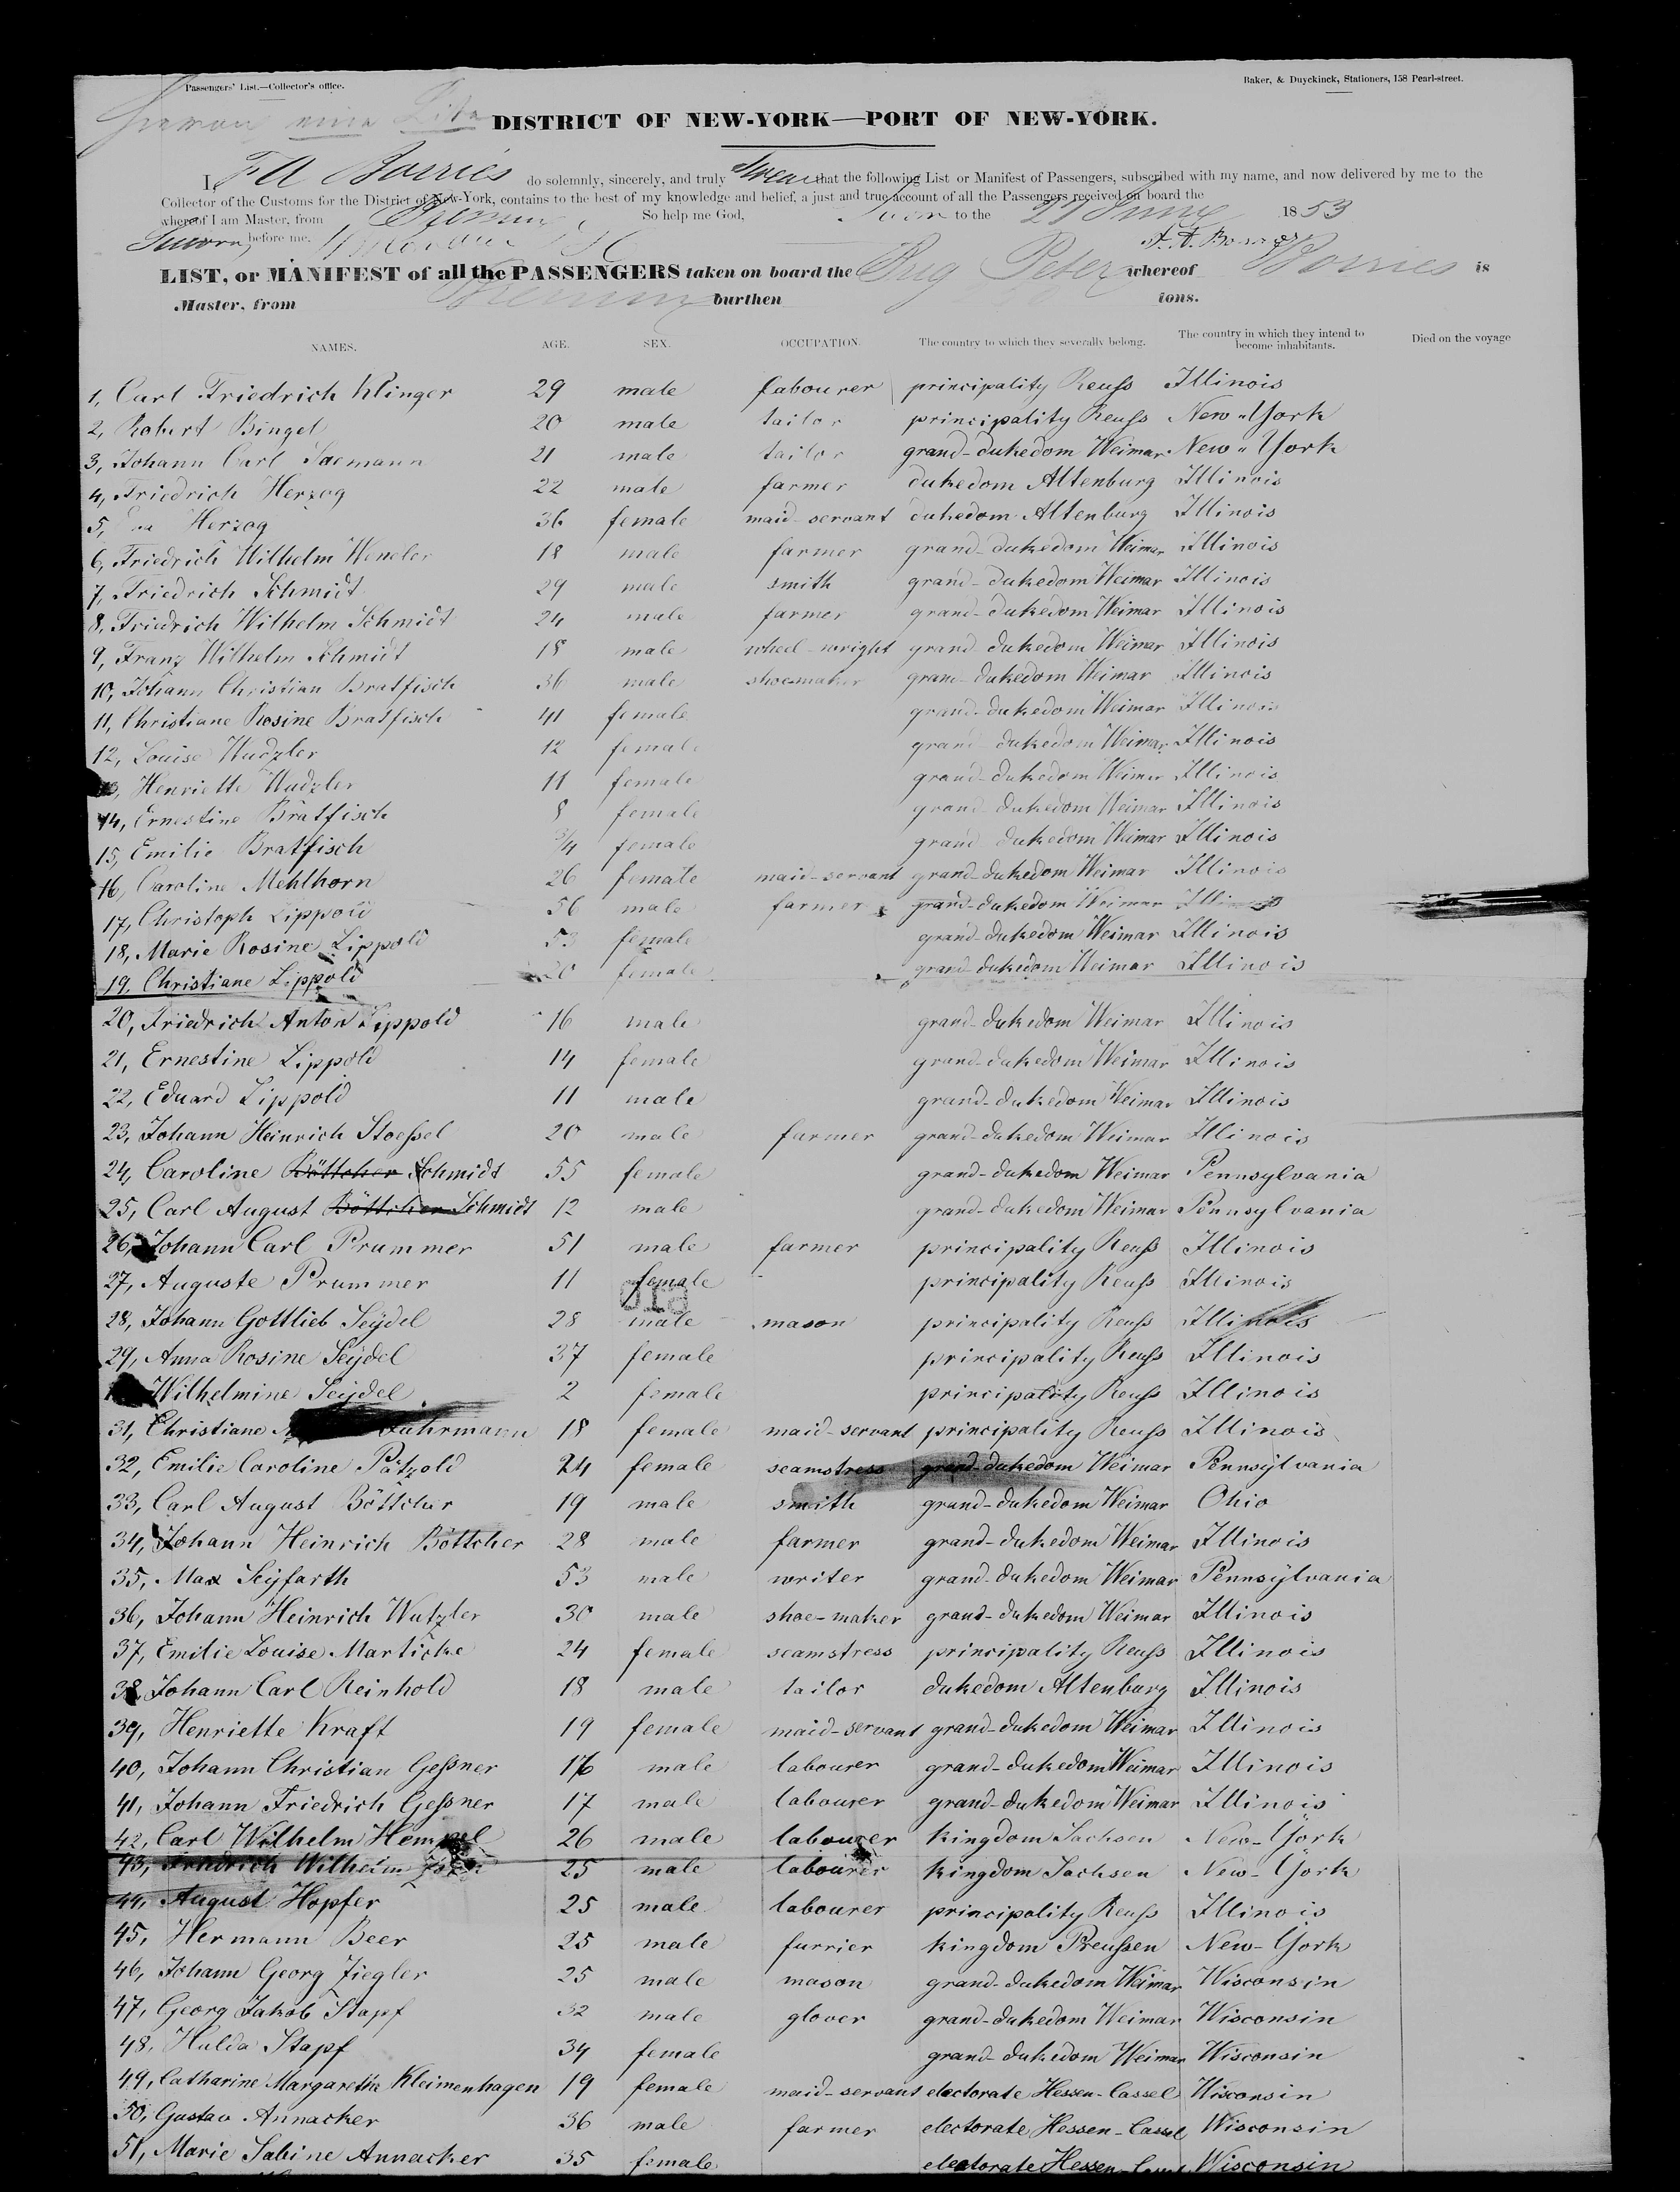 Passengers' List.—Collector's office.
Baker, & Duyckinck, Stationers, 158 Pearl-street.
DISTRICT OF NEW-YORK—PORT OF NEW-YORK.
I, F A Borries do solemnly, sincerely, and truly Swear that the following List or Manifest of Passengers, subscribed with my name, and now delivered by me to the
Collector of the Customs for the District of New-York, contains to the best of my knowledge and belief, a just and true account of all the Passengers received on board the
whereof I am Master, from Bremen So help me God, Sworn to the 27 June 1853
Sworn, before me, F. A. Borries
LIST, or MANIFEST of all the PASSENGERS taken on board the Brig Peter whereof Borries is
Master, from Bremen burthen tons.
NAMES. AGE. SEX. OCCUPATION. The country to which they severally belong. The country in which they intend to become inhabitants. Died on the voyage
1, Carl Friedrich Klinger 29 male labourer principality Reuss Illinois
2, Robert Bingel 20 male tailor principality Reuss New-York
3, Johann Carl Saemann 21 male tailor grand-dukedom Weimar New-York
4, Friedrich Herzog 22 male farmer dukedom Altenburg Illinois
5, Herzog 36 female maid-servant dukedom Altenburg Illinois
6, Friedrich Wilhelm Wencler 18 male farmer grand-dukedom Weimar Illinois
7, Friedrich Schmidt 29 male smith grand-dukedom Weimar Illinois
8, Friedrich Wilhelm Schmidt 24 male farmer grand-dukedom Weimar Illinois
9, Franz Wilhelm Schmidt 18 male wheel-wright grand-dukedom Weimar Illinois
10, Johann Christian Bratfisch 36 male shoemaker grand-dukedom Weimar Illinois
11, Christiane Rosine Bratfisch 41 female grand-dukedom Weimar Illinois
12, Louise Wudzler 12 female grand-dukedom Weimar Illinois
13, Henriette Wudzler 11 female grand-dukedom Weimar Illinois
14, Ernestine Bratfisch 8 female grand-dukedom Weimar Illinois
15, Emilie Bratfisch 3/4 female grand-dukedom Weimar Illinois
16, Caroline Mehlhorn 26 female maid-servant grand-dukedom Weimar Illinois
17, Christoph Lippold 56 male farmer grand-dukedom Weimar Illinois
18, Marie Rosine Lippold 53 female grand-dukedom Weimar Illinois
19, Christiane Lippold 20 female grand-dukedom Weimar Illinois
20, Friedrich Anton Lippold 16 male grand-dukedom Weimar Illinois
21, Ernestine Lippold 14 female grand-dukedom Weimar Illinois
22, Eduard Lippold 11 male grand-dukedom Weimar Illinois
23, Johann Heinrich Stoessel 20 male farmer grand-dukedom Weimar Illinois
24, Caroline Böttcher Schmidt 55 female grand-dukedom Weimar Pennsylvania
25, Carl August Böttcher Schmidt 12 male grand-dukedom Weimar Pennsylvania
26, Johann Carl Prummer 51 male farmer principality Reuss Illinois
27, Auguste Prummer 11 female principality Reuss Illinois
28, Johann Gottlieb Seydel 28 male mason principality Reuss Illinois
29, Anna Rosine Seydel 37 female principality Reuss Illinois
Wilhelmine Seydel 2 female principality Reuss Illinois
31, Christiane Fuhrmann 18 female maid-servant principality Reuss Illinois
32, Emilie Caroline Pätzold 24 female seamstress grand-dukedom Weimar Pennsylvania
33, Carl August Böttcher 19 male smith grand-dukedom Weimar Ohio
34, Johann Heinrich Böttcher 28 male farmer grand-dukedom Weimar Illinois
35, Max Seyfarth 53 male writer grand-dukedom Weimar Pennsylvania
36, Johann Heinrich Wutzler 30 male shoe-maker grand-dukedom Weimar Illinois
37, Emilie Louise Marticke 24 female seamstress principality Reuss Illinois
38, Johann Carl Reinhold 18 male tailor dukedom Altenburg Illinois
39, Henriette Kraft 19 female maid-servant grand-dukedom Weimar Illinois
40, Johann Christian Gessner 16 male labourer grand-dukedom Weimar Illinois
41, Johann Friedrich Gessner 17 male labourer grand-dukedom Weimar Illinois
42, Carl Wilhelm Hempel 26 male labourer kingdom Sachsen New-York
43, Friedrich Wilhelm 25 male labourer kingdom Sachsen New-York
44, August Hopfer 25 male labourer principality Reuss Illinois
45, Hermann Beer 25 male furrier kingdom Preussen New-York
46, Johann Georg Ziegler 25 male mason grand-dukedom Weimar Wisconsin
47, Georg Jakob Stapf 32 male glover grand-dukedom Weimar Wisconsin
48, Hulda Stapf 34 female grand-dukedom Weimar Wisconsin
49, Catharine Margarethe Kleimenhagen 19 female maid-servant electorate Hessen-Cassel Wisconsin
50, Gustav Annacker 36 male farmer electorate Hessen-Cassel Wisconsin
51, Marie Sabine Annacker 35 female electorate Hessen-Cassel Wisconsin